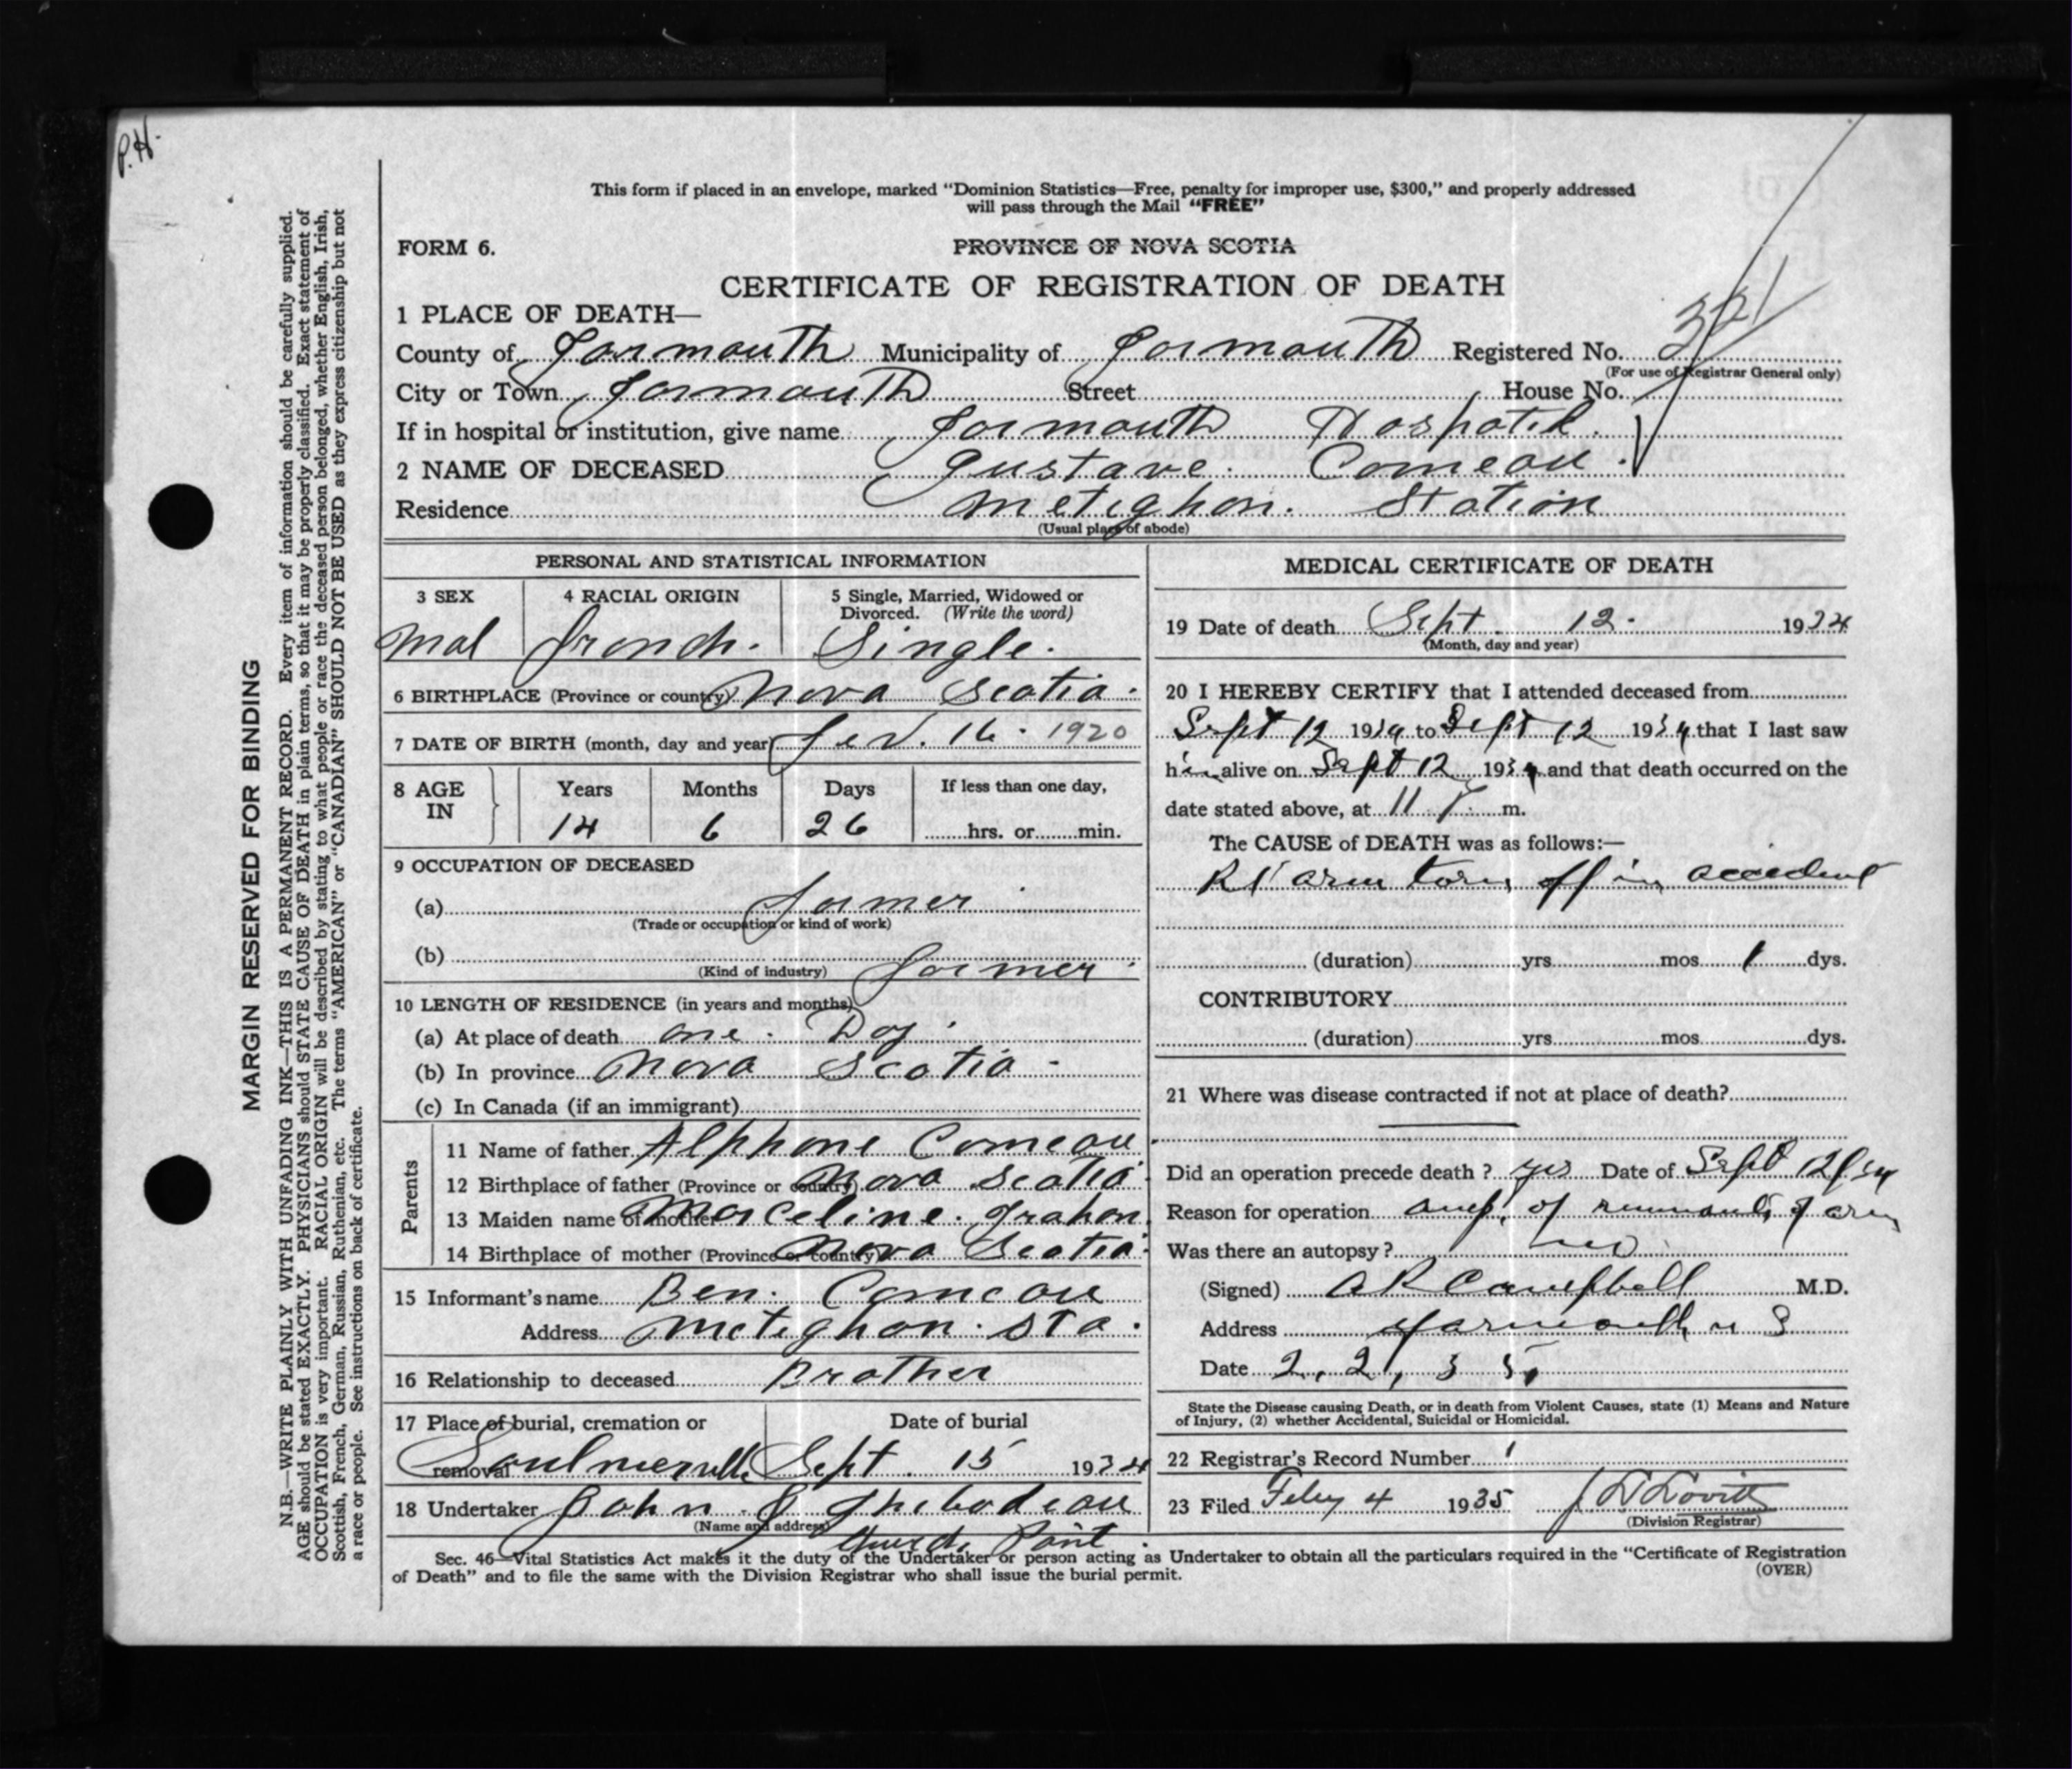 P.H.
This form if placed in an envelope, marked "Dominion Statistics—Free, penalty for improper use, $300," and properly addressed
will pass through the Mail "FREE"
FORM 6.
PROVINCE OF NOVA SCOTIA
CERTIFICATE OF REGISTRATION OF DEATH
1 PLACE OF DEATH—
County of Yarmouth Municipality of Yarmouth Registered No. 321
(For use of Registrar General only)
City or Town Yarmouth Street House No.
If in hospital or institution, give name Yarmouth Hospatil.
2 NAME OF DECEASED Gustave. Comeau.
Residence Meteghon. Station
(Usual place of abode)
PERSONAL AND STATISTICAL INFORMATION
3 SEX 4 RACIAL ORIGIN 5 Single, Married, Widowed or
Divorced. (Write the word)
Mal French. Single.
6 BIRTHPLACE (Province or country) Nova Scotia.
7 DATE OF BIRTH (month, day and year) 16. 1920
8 AGE IN Years Months Days If less than one day,
14 6 26 hrs. or min.
9 OCCUPATION OF DECEASED
(a) Farmer
(Trade or occupation or kind of work)
(b) Farmer.
(Kind of industry)
10 LENGTH OF RESIDENCE (in years and months)
(a) At place of death one. Day.
(b) In province Nova Scotia.
(c) In Canada (if an immigrant)
Parents
11 Name of father Alphone Comeau.
12 Birthplace of father (Province or country) Nova Scotia
13 Maiden name of mother Marceline. Grahon.
14 Birthplace of mother (Province or country) Nova Scotia.
15 Informant's name Ben. Comeau
Address Meteghon. Sta.
16 Relationship to deceased Brother
17 Place of burial, cremation or Date of burial
removal Saulnierville Sept. 15 1934
18 Undertaker John. J. Thebodeau
(Name and address)
Point.
MEDICAL CERTIFICATE OF DEATH
19 Date of death Sept. 12. 1934
(Month, day and year)
20 I HEREBY CERTIFY that I attended deceased from
Sept 12 1934 to Sept 12 1934 that I last saw
him alive on Sept 12 1934 and that death occurred on the
date stated above, at 11 P. m.
The CAUSE of DEATH was as follows:—
Rt arm torn off in accident
(duration) yrs mos 1 dys.
CONTRIBUTORY
(duration) yrs mos dys.
21 Where was disease contracted if not at place of death?
Did an operation precede death? yes Date of Sept 12/34
Reason for operation amp. of remnants of arm
Was there an autopsy? no
(Signed) A R Campbell M.D.
Address Yarmouth N S
Date 2, 2, 35,
State the Disease causing Death, or in death from Violent Causes, state (1) Means and Nature
of Injury, (2) whether Accidental, Suicidal or Homicidal.
22 Registrar's Record Number 1
23 Filed Feby 4 1935 J D Lovitt
(Division Registrar)
Sec. 46—Vital Statistics Act makes it the duty of the Undertaker or person acting as Undertaker to obtain all the particulars required in the "Certificate of Registration
of Death" and to file the same with the Division Registrar who shall issue the burial permit.
(OVER)
MARGIN RESERVED FOR BINDING
N.B.—WRITE PLAINLY WITH UNFADING INK—THIS IS A PERMANENT RECORD. Every item of information should be carefully supplied.
AGE should be stated EXACTLY. PHYSICIANS should STATE CAUSE OF DEATH in plain terms, so that it may be properly classified. Exact statement of
OCCUPATION is very important. RACIAL ORIGIN will be described by stating to what people or race the deceased person belonged, whether English, Irish,
Scottish, French, German, Russian, Ruthenian, etc. The terms "AMERICAN" or "CANADIAN" SHOULD NOT BE USED as they express citizenship but not
a race or people. See instructions on back of certificate.